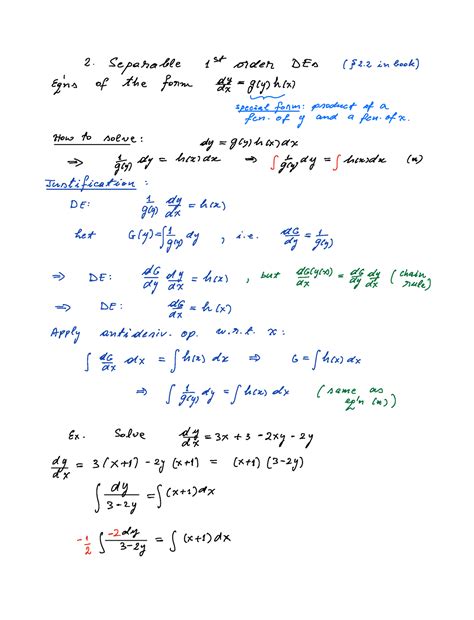 2. Separable 1st order DEs (§2.2 in book)
Eq'ns of the form dy/dx = g(y) h(x)
special form: product of a
fcn. of y and a fcn. of x.
How to solve: dy = g(y) h(x) dx
⇒ 1/g(y) dy = h(x) dx ⇒ ∫ 1/g(y) dy = ∫ h(x) dx (*)
Justification:
DE: 1/g(y) dy/dx = h(x)
Let G(y) = ∫ 1/g(y) dy, i.e. dG/dy = 1/g(y)
⇒ DE: dG/dy dy/dx = h(x), but dG(y(x))/dx = dG/dy dy/dx (chain rule)
⇒ DE: dG/dx = h(x)
Apply antideriv. op. w.r.t. x:
∫ dG/dx dx = ∫ h(x) dx ⇒ G = ∫ h(x) dx
⇒ ∫ 1/g(y) dy = ∫ h(x) dx (same as eq'n (*))
Ex. Solve dy/dx = 3x + 3 - 2xy - 2y
dy/dx = 3(x+1) - 2y(x+1) = (x+1)(3-2y)
∫ dy/3-2y = ∫ (x+1) dx
-1/2 ∫ -2dy/3-2y = ∫ (x+1) dx